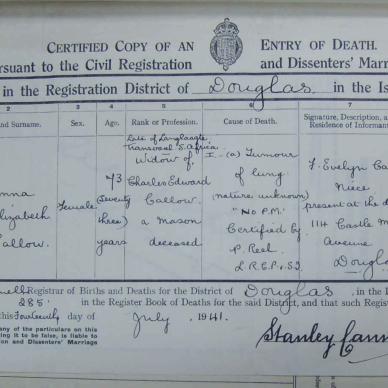 CERTIFIED COPY OF AN ENTRY OF DEATH.
rsuant to the Civil Registration and Dissenters' Marria
in the Registration District of Douglas in the Is
2 3 4 5 6 7
nd Surname. Sex. Age. Rank or Profession. Cause of Death. Signature, Description, a
Residence of Informant
Late of Langlaagte
Transvaal S. Africa
Widow of I. (a) Tumour F. Evelyn Ca
nna 73 Charles Edward of lung Niece
lizabeth Female (seventy Callow, nature unknown) present at the d
allow. three) a Mason "No P.M." 114 Castle M
years deceased Certified by Avenue
P. Reel Douglas
L.R.C.P., S.I.
Registrar of Births and Deaths for the District of Douglas, in the I
285 in the Register Book of Deaths for the said District, and that such Regist
this Fourteenth day of July 1941.
any of the particulars on this
ing it to be false, is liable to
tion and Dissenters' Marriage
Stanley Cann